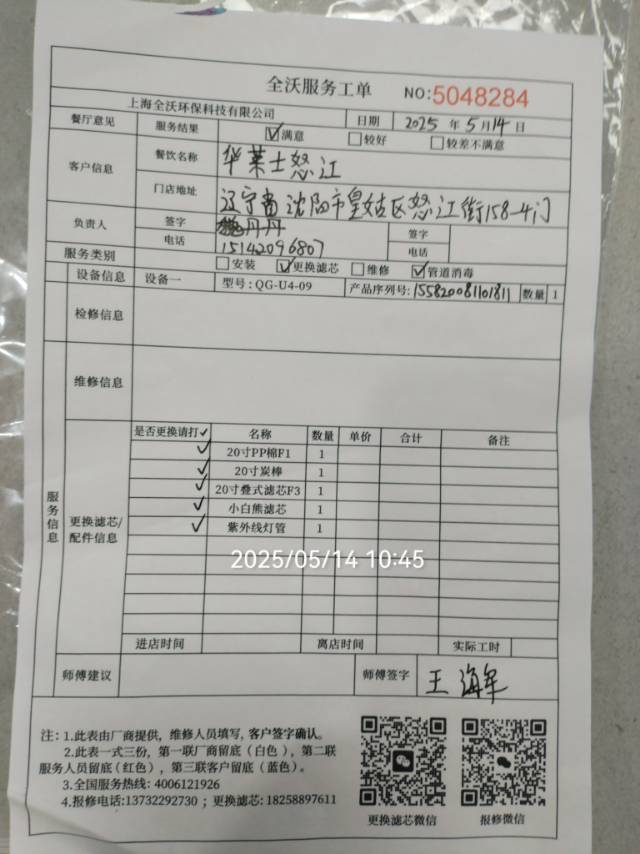 全沃服务工单 NO:5048284
上海全沃环保科技有限公司 日期 2025 年 5 月 14 日
餐厅意见 服务结果 ☑满意 ☐较好 ☐较差不满意
客户信息 餐饮名称 华莱士怒江
门店地址 辽宁省沈阳市皇姑区怒江街158-4门
负责人 签字 丹丹 签字
电话 15142096807 电话
服务类别 ☐安装 ☑更换滤芯 ☐维修 ☑管道消毒
设备信息 设备一 型号:QG-U4-09 产品序列号:155820081101811 数量 1
检修信息
维修信息
服务信息
更换滤芯/配件信息
是否更换请打✓ 名称 数量 单价 合计 备注
✓ 20寸PP棉F1 1
✓ 20寸炭棒 1
✓ 20寸叠式滤芯F3 1
✓ 小白熊滤芯 1
✓ 紫外线灯管 1
2025/05/14 10:45
进店时间 离店时间 实际工时
师傅建议 师傅签字 王海军
注:1.此表由厂商提供，维修人员填写, 客户签字确认。
2.此表一式三份，第一联厂商留底（白色），第二联
服务人员留底(红色），第三联客户留底（蓝色）。
3.全国服务热线: 4006121926
4.报修电话:13732292730 ; 更换滤芯: 18258897611
更换滤芯微信 报修微信